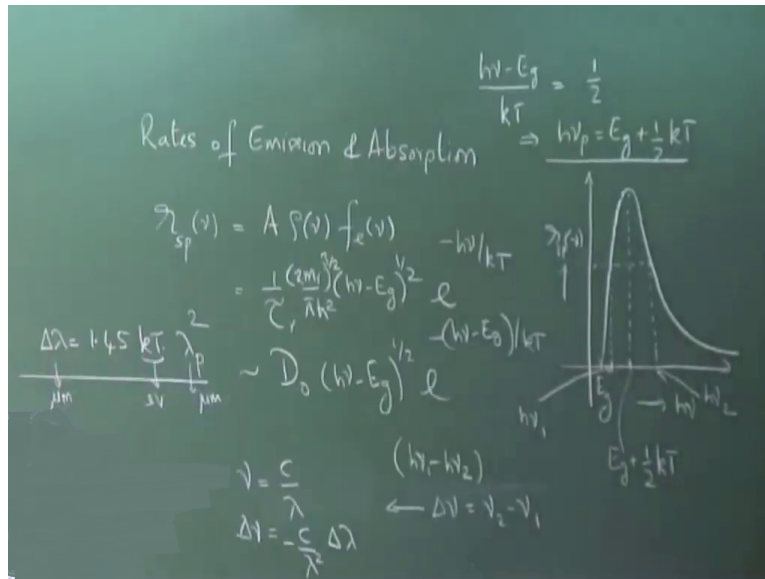 hν-Eg/kT = 1/2
⇒ hνp = Eg + 1/2 kT
Rates of Emission & Absorption
r_sp(ν) = A ρ(ν) fe(ν)
= 1/τr (2mr)^3/2/πħ² (hν-Eg)^1/2 e^-hν/kT
~ D₀ (hν-Eg)^1/2 e^-(hν-Eg)/kT
Δλ = 1.45 kT λp²
μm eV μm
ν = c/λ
Δν = -c/λ² Δλ
(hν₁-hν₂)
← Δν = ν₂-ν₁
r_sp(ν)
hν₁ Eg → hν hν₂
Eg + 1/2 kT